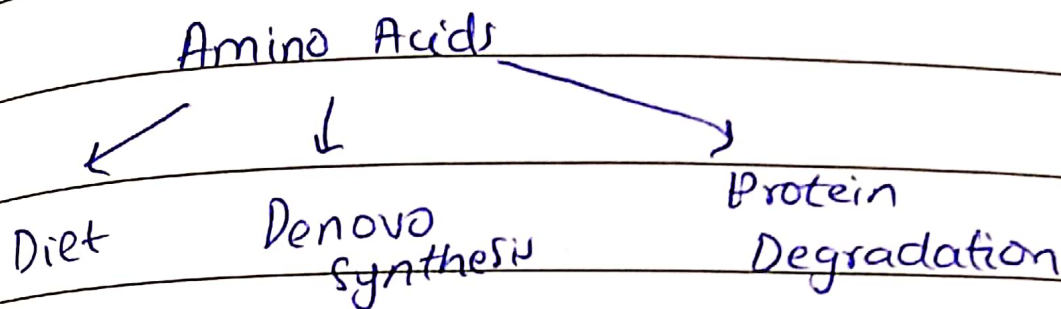 Amino Acids
Diet
Denovo
synthesis
Protein
Degradation